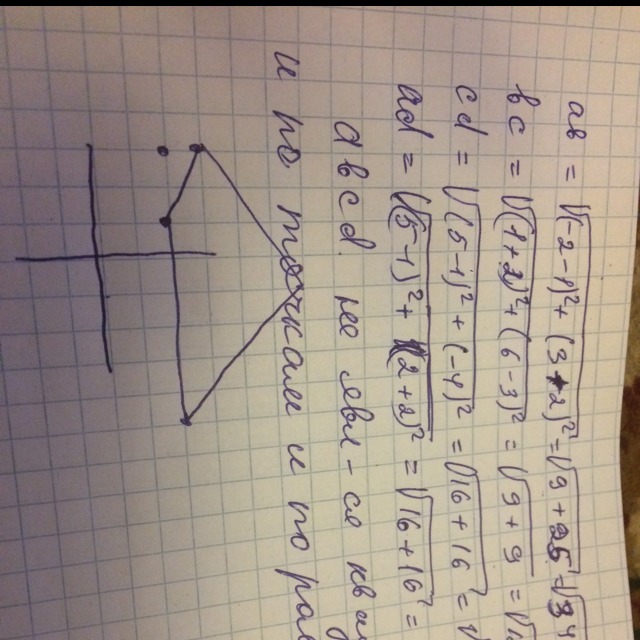 ab = √(-2-1)²+(3+2)² = √9+25 = √34
bc = √(1+2)²+(6-3)² = √9+9 = √
cd = √(5-1)²+(-4)² = √16+16 = √
ad = √(5-1)²+(2+2)² = √16+16 =
abcd не явл-ся
и по точкам и по